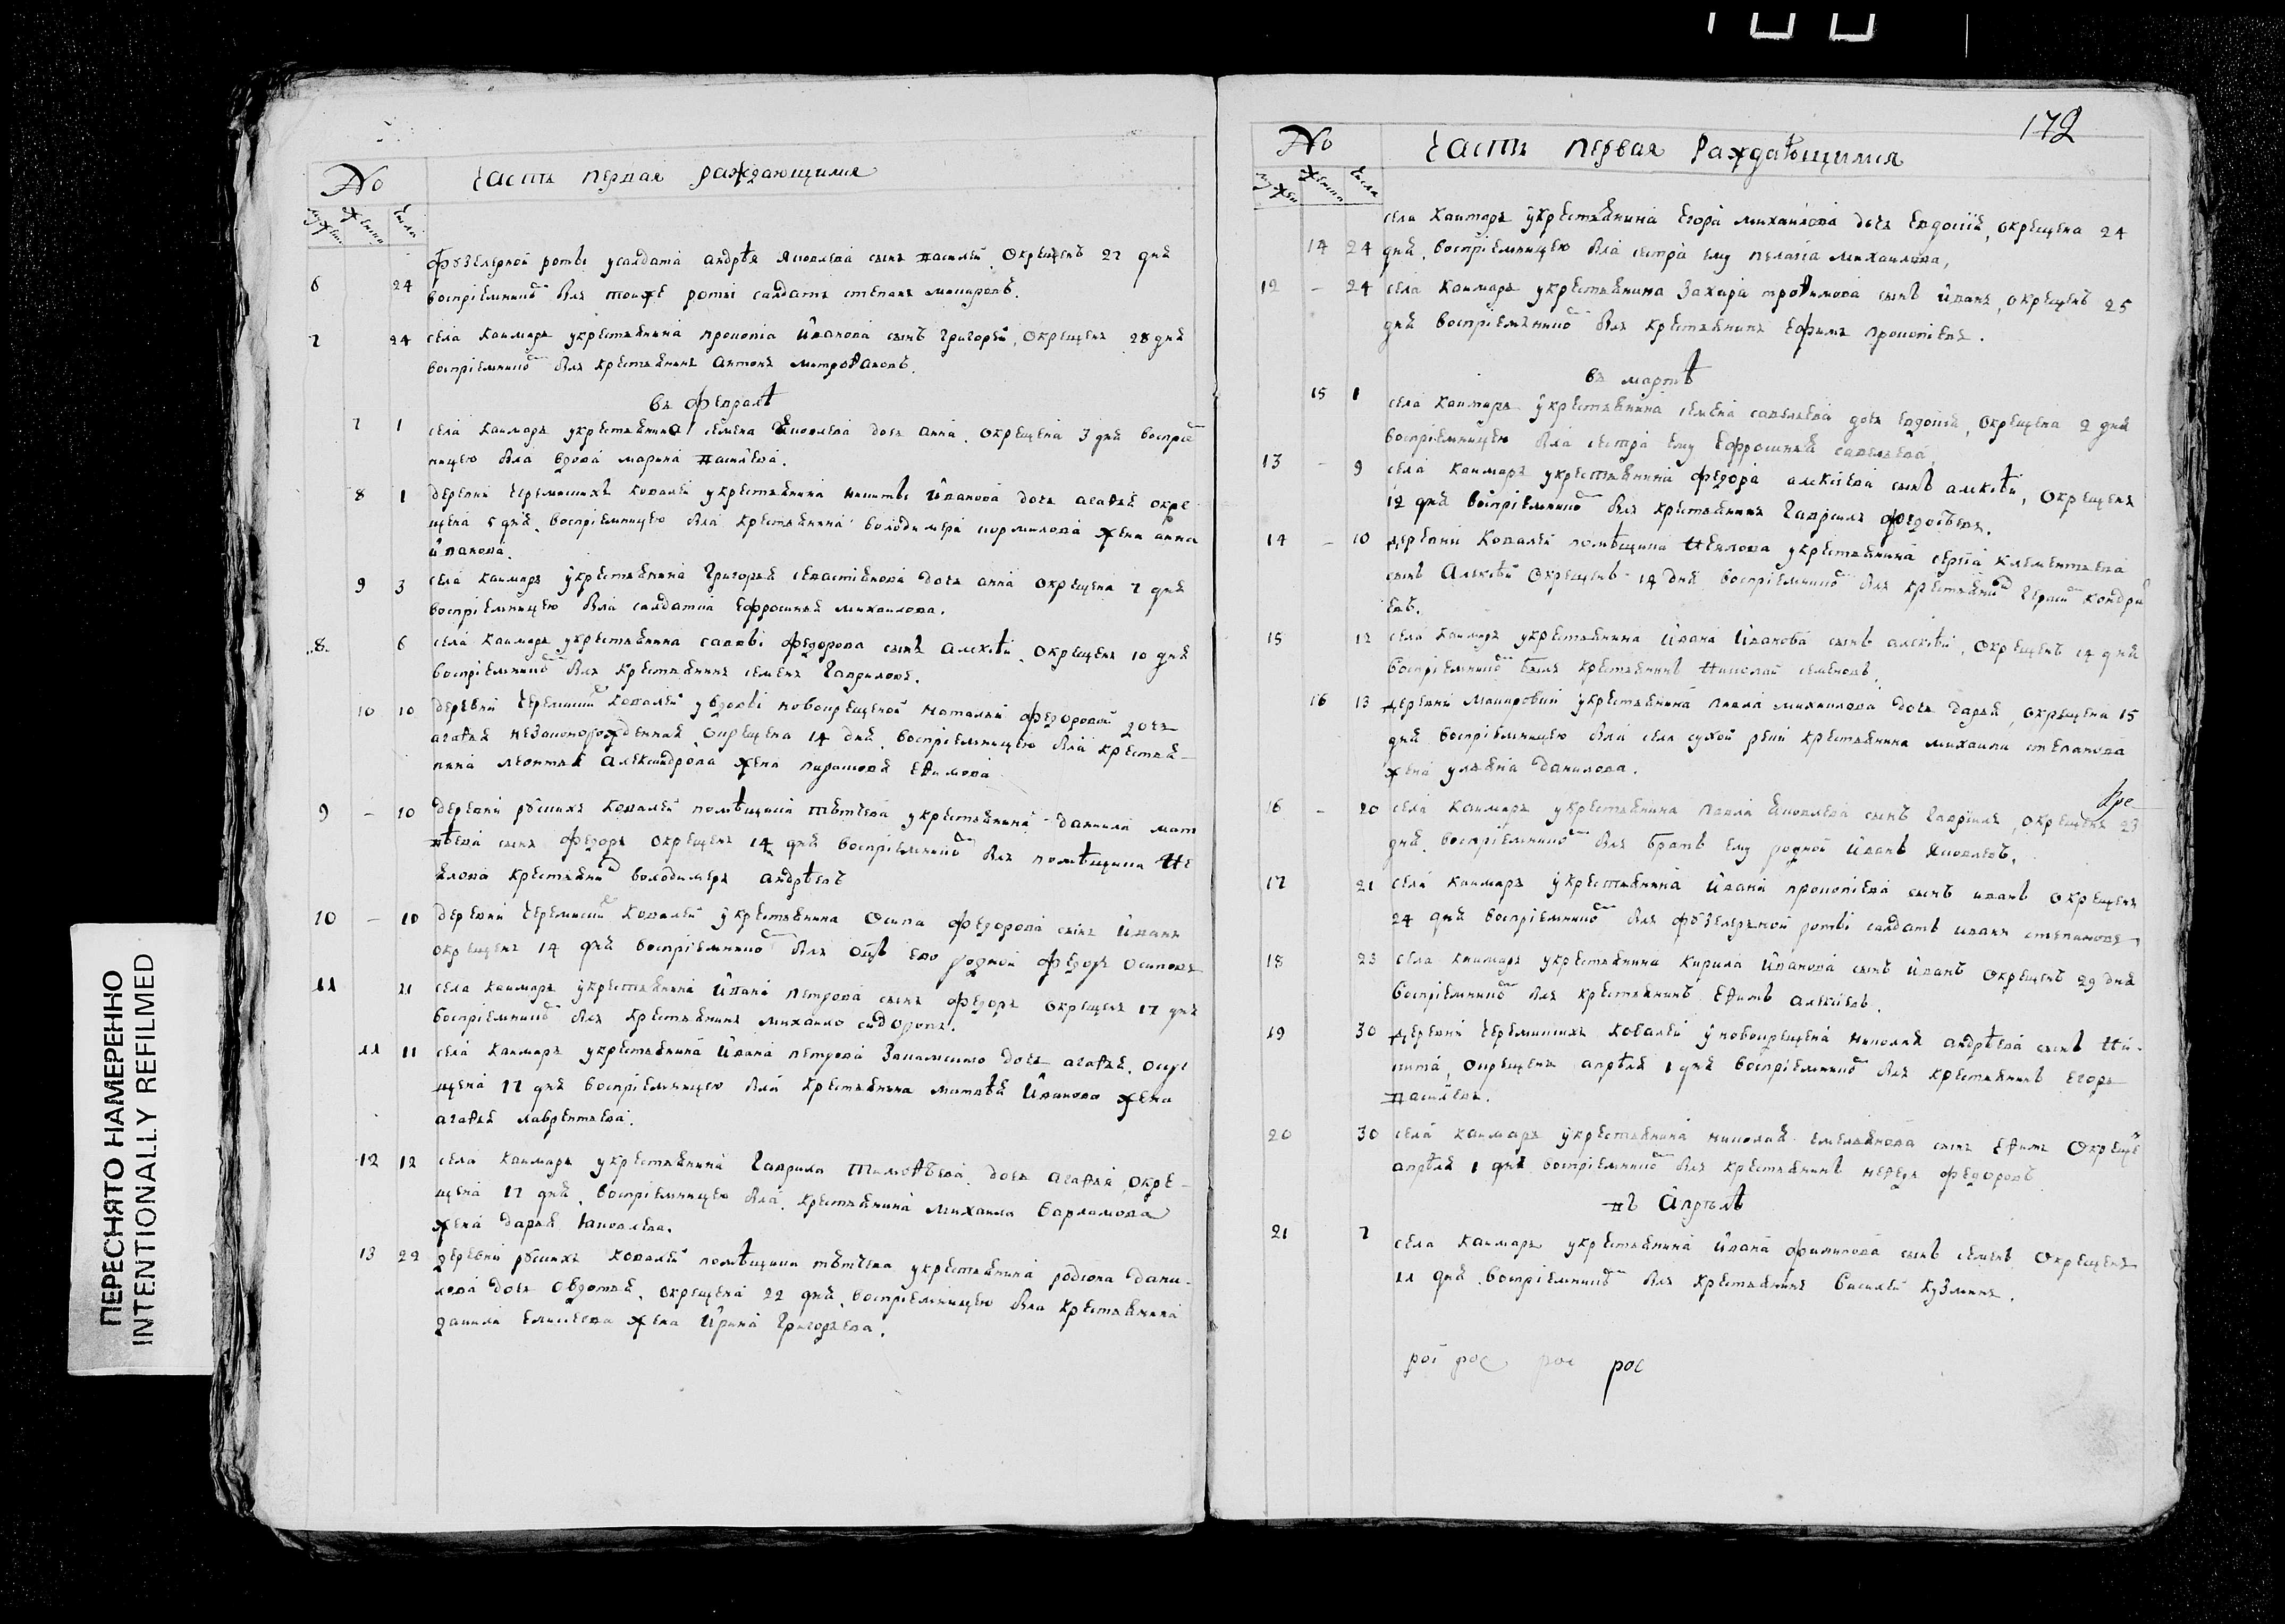 172
№ Часть первая раждающимся
мужеска женска числа
фузелерной роты усалдата андрѣя яковлева сынъ василей, окрещенъ 27 дня
6 24 воспріемникомъ былъ тоиже роты салдатъ степанъ
7 24 села каимаръ укрестьянина прокопіа иванова сынъ григорей, окрещенъ 28 дня
воспріемникомъ былъ крестьянинъ антонъ митроѳановъ.
въ февралѣ
7 1 села каимаръ укрестьянина семена яковлева дочь анна, окрещена 3 дня воспріем
ницею была вдова марина василева.
8 1 деревни черемискихъ ковалей укрестьянина никиты иванова дочь агаѳья окре
щена 5 дня, воспріемницею была крестьянина володимера кормилова жена анна
иванова.
9 3 села каимаръ укрестьянина григорья севастьянова дочь анна окрещена 7 дня
воспріемницею была салдатка ефросинья михаилова.
8 6 села каимаръ укрестьянина савы федорова сынъ алексѣи, окрещенъ 10 дня
воспріемникомъ былъ крестьянинъ семенъ гавриловъ.
10 10 деревни черемискихъ ковалей увдовы новокрещеной натальи федоровой дочь
агаѳья незаконорожденная, окрещена 14 дня, воспріемницею была крестья-
нина леонтья александрова жена парасковья еѳимова
9 – 10 деревни рускихъ ковалей помѣщика тѣтѣева укрестьянина данила мат
вѣева сынъ федоръ окрещенъ 14 дня воспріемникомъ былъ помѣщика не
елова крестьянинъ володимеръ андрѣевъ
10 – 10 деревни черемискихъ ковалей укрестьянина осипа федорова сынъ иванъ
окрещенъ 14 дня воспріемникомъ былъ оцъ ево родной федоръ осиповъ
11 11 села каимаръ укрестьянина ивана петрова сынъ федоръ окрещенъ 17 дня
воспріемникомъ былъ крестьянинъ михаило сидоровъ.
11 11 села каимаръ укрестьянина ивана петрова дочь агаѳья, окре
щена 17 дня воспріемницею была крестьянина матвѣя иванова жена
агаѳья лаврентьева.
12 12 села каимаръ укрестьянина гаврила тимоѳѣева дочь агаѳья, окре-
щена 17 дня, воспріемницею была крестьянина михаила варламова
жена дарья яковлева.
13 22 деревни рускихъ ковалей помѣщика тѣтѣева укрестьянина родіона дани-
лова дочь овдотья, окрещена 22 дня, воспріемницею была крестьянина
данила елисеева жена ирина григорьева.
№ Часть первая раждающимся
мужеска женска числа
села каимаръ укрестьянина егора михаилова дочь евдокія, окрещена 24
14 24 дня, воспріемницею была сестра ему пелагіа михаилова,
12 – 24 села каимаръ укрестьянина захара троѳимова сынъ иванъ, окрещенъ 25
дня воспріемникомъ былъ крестьянинъ ефимъ прокопіевъ.
въ мартѣ
15 1 села каимаръ укрестьянина семена савельева дочь евдокія, окрещена 2 дня
воспріемницею была сестра ему ефросинья савельева,
13 – 9 села каимаръ укрестьянина федора алексіева сынъ алексѣи, окрещенъ
12 дня воспріемникомъ былъ крестьянинъ гавріилъ федосѣевъ.
14 – 10 деревни ковалей помѣщика неелова укрестьянина сергіа клементьева
сынъ алексѣй окрещенъ 14 дня воспріемникомъ былъ крестьянинъ герасимъ кондра
евъ.
15 12 села каимаръ укрестьянина ивана иванова сынъ алексѣй, окрещенъ 14 дня
воспріемникомъ былъ крестьянинъ николай семеновъ.
16 13 деревни макировки укрестьянина павла михаилова дочь дарья, окрещена 15
дня воспріемницею была села сухой реки крестьянина михаила степанова
жена ульяна данилова.
16 – 20 села каимаръ укрестьянина павла яковлева сынъ гавріилъ, окрещенъ 23
дня, воспріемникомъ былъ братъ ему родной иванъ яковлевъ.
17 21 села каимаръ укрестьянина ивана прокопіева сынъ иванъ окрещенъ
24 дня воспріемникомъ былъ фузелерной роты салдатъ иванъ степановъ
18 23 села каимаръ укрестьянина кирила иванова сынъ иванъ окрещенъ 29 дня
воспріемникомъ былъ крестьянинъ еѳимъ алексіевъ.
19 30 деревни черемискихъ ковалей уновокрещена николая андрѣева сынъ ни-
кита, окрещенъ апрѣля 1 дня воспріемникомъ былъ крестьянинъ егоръ
василевъ.
20 30 села каимаръ укрестьянина николая емельянова сынъ еѳимъ окреще
апрѣля 1 дня воспріемникомъ былъ крестьянинъ федоровъ
въ апрѣлѣ
21 7 села каимаръ укрестьянина ивана филипова сынъ семенъ, окрещенъ
11 дня воспріемникомъ былъ крестьянинъ василей кузминъ.
рос рос рос рос
ПЕРЕСНЯТО НАМЕРЕННО
INTENTIONALLY REFILMED